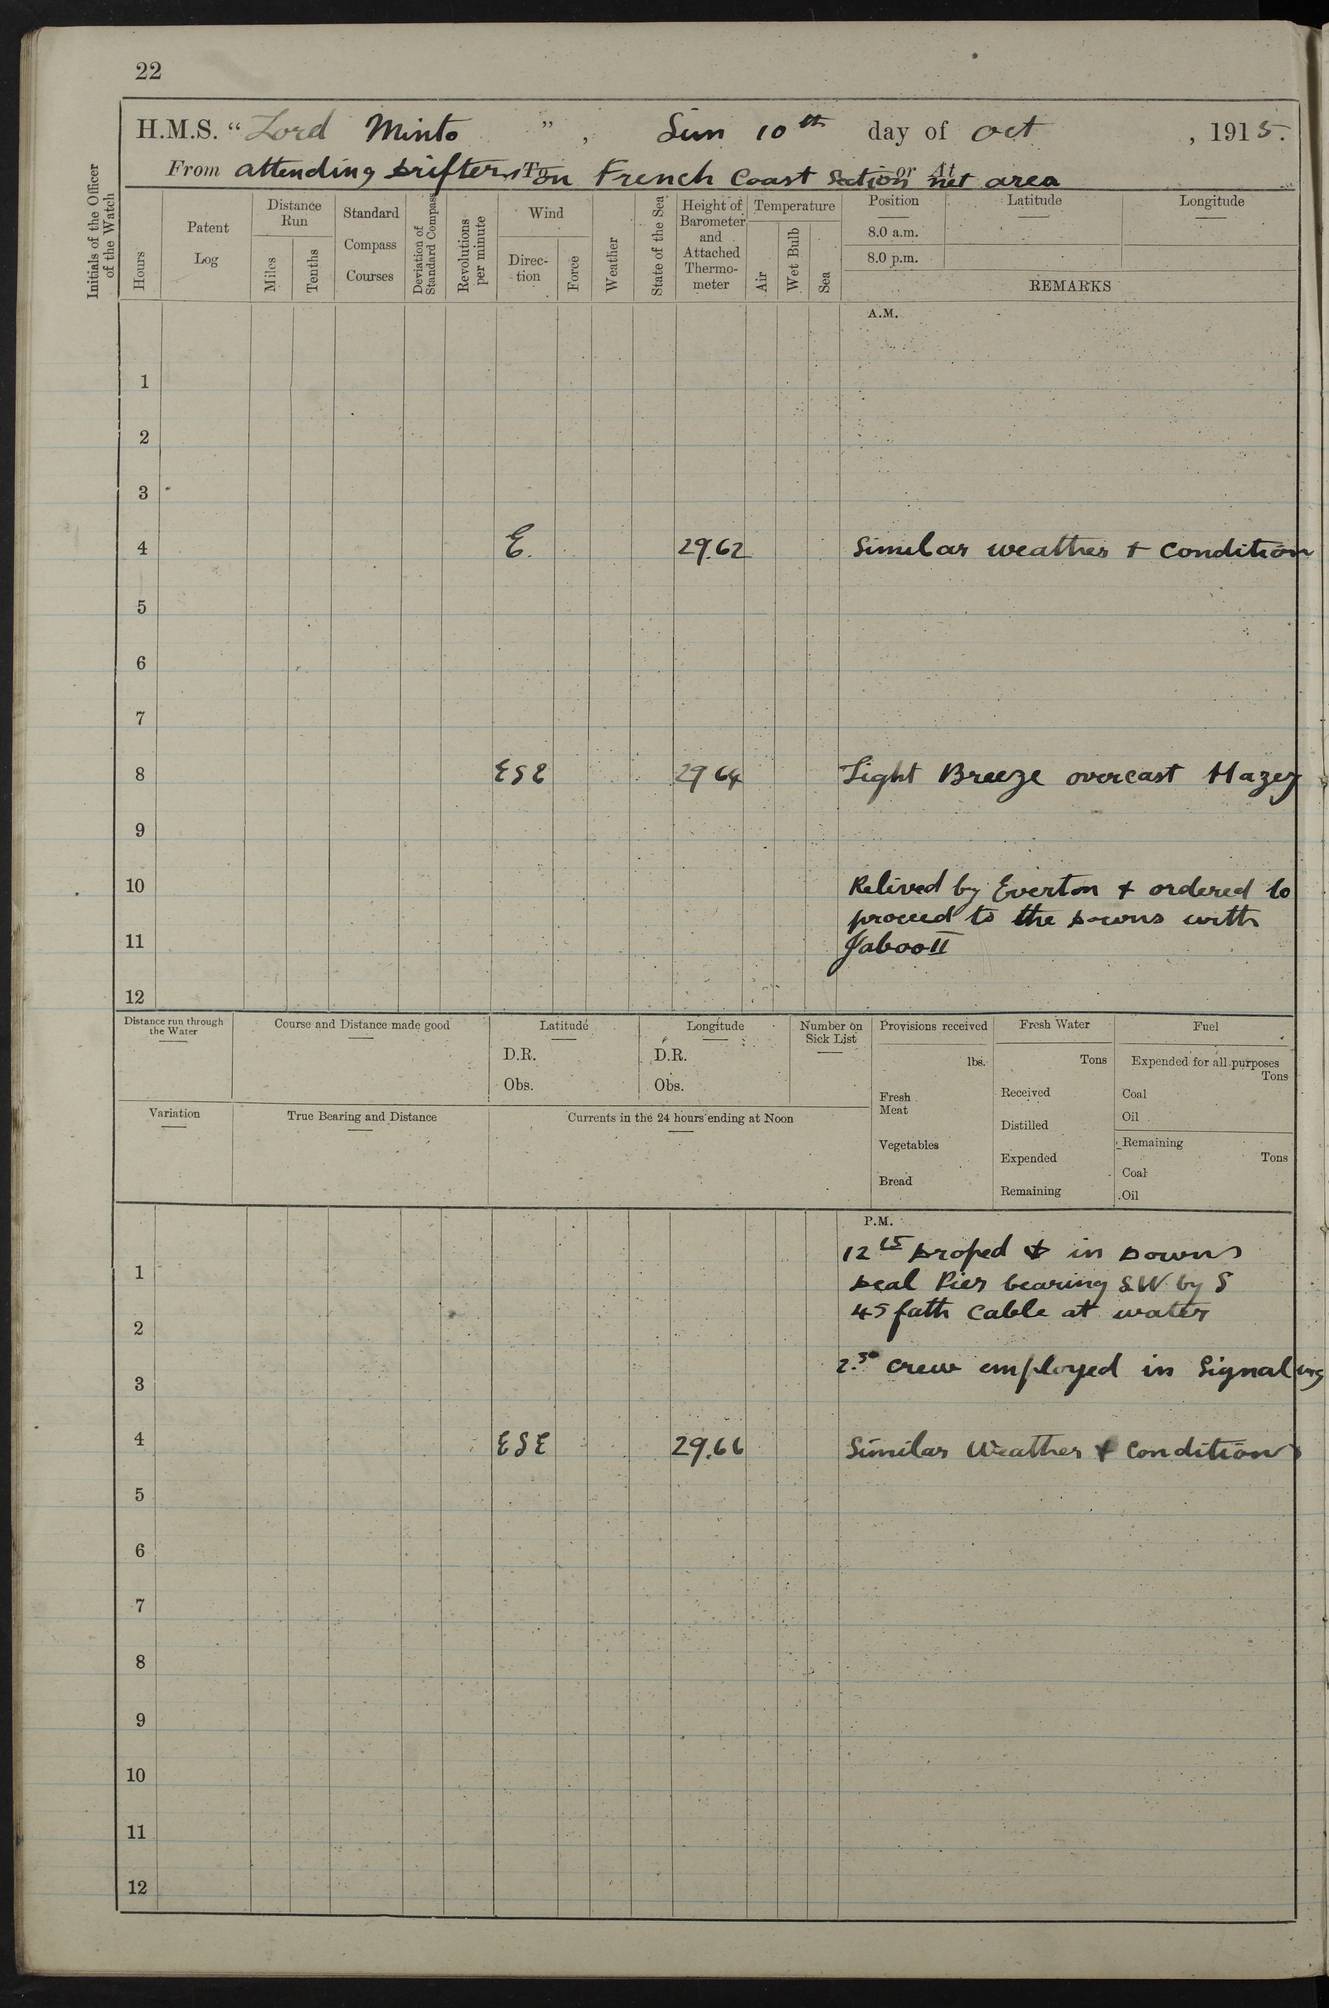 22
H.M.S. "Lord Minto", Sun 10th day of Oct, 1915.
From attending Drifters To on French Coast Section or At net area
Initials of the Officer of the Watch
Hours
Patent Log
Distance Run
Miles
Tenths
Standard Compass Courses
Deviation of Standard Compass
Revolutions per minute
Wind
Direction
Force
Weather
State of the Sea
Height of Barometer and Attached Thermometer
Temperature
Air
Wet Bulb
Sea
Position Latitude Longitude
8.0 a.m.
8.0 p.m.
REMARKS
A.M.
1
2
3
4 E. 29.62 Similar weather + Condition
5
6
7
8 ESE 29 64 Light Breeze overcast Hazey
9
10 Relived by Everton + ordered to
proceed to the Downs with
11 Jaboo II
12
Distance run through the Water
Course and Distance made good
Latitude
D.R.
Obs.
Longitude
D.R.
Obs.
Number on Sick List
Provisions received
lbs.
Fresh Meat
Vegetables
Bread
Fresh Water
Tons
Received
Distilled
Expended
Remaining
Fuel
Expended for all purposes
Tons
Coal
Oil
Remaining
Tons
Coal
Oil
Variation
True Bearing and Distance
Currents in the 24 hours ending at Noon
P.M.
12 15 Droped ⚓ in Downs
1 Deal Pier bearing SW by S
45 fath Cable at water
2
2.30 Crew employed in Signaling
3
4 ESE 29.66 Similar Weather + Conditions
5
6
7
8
9
10
11
12